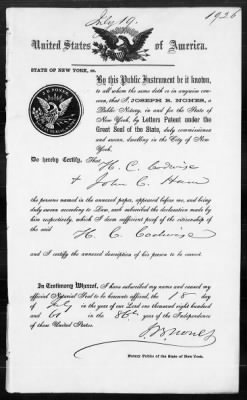 July 19. 1926
United States of America.
STATE OF NEW YORK, ss.
By this Public Instrument be it known,
to all whom the same doth or in anywise concern,
that I, JOSEPH B. NONES, a
Public Notary, in and for the State of
New York, by Letters Patent under the
Great Seal of the State, duly commissioned
and sworn, dwelling in the City of New
York.
Do hereby Certify, That H. C. Codwise
+ John C.
persons named in the annexed paper, appeared before me, and being
duly sworn according to Law, each subscribed the declaration made by
him respectively, which I deem sufficient proof of the citizenship of
the said H. C. Codwise
and I certify the annexed description of his person to be correct.
In Testimony Whereof, I have subscribed my name and caused my
official Notarial Seal to be hereunto affixed, the 18 day
of July in the year of our Lord one thousand eight hundred
and 61 in the 86th year of the Independence
of these United States.
J B Nones
Notary Public of the State of New York.